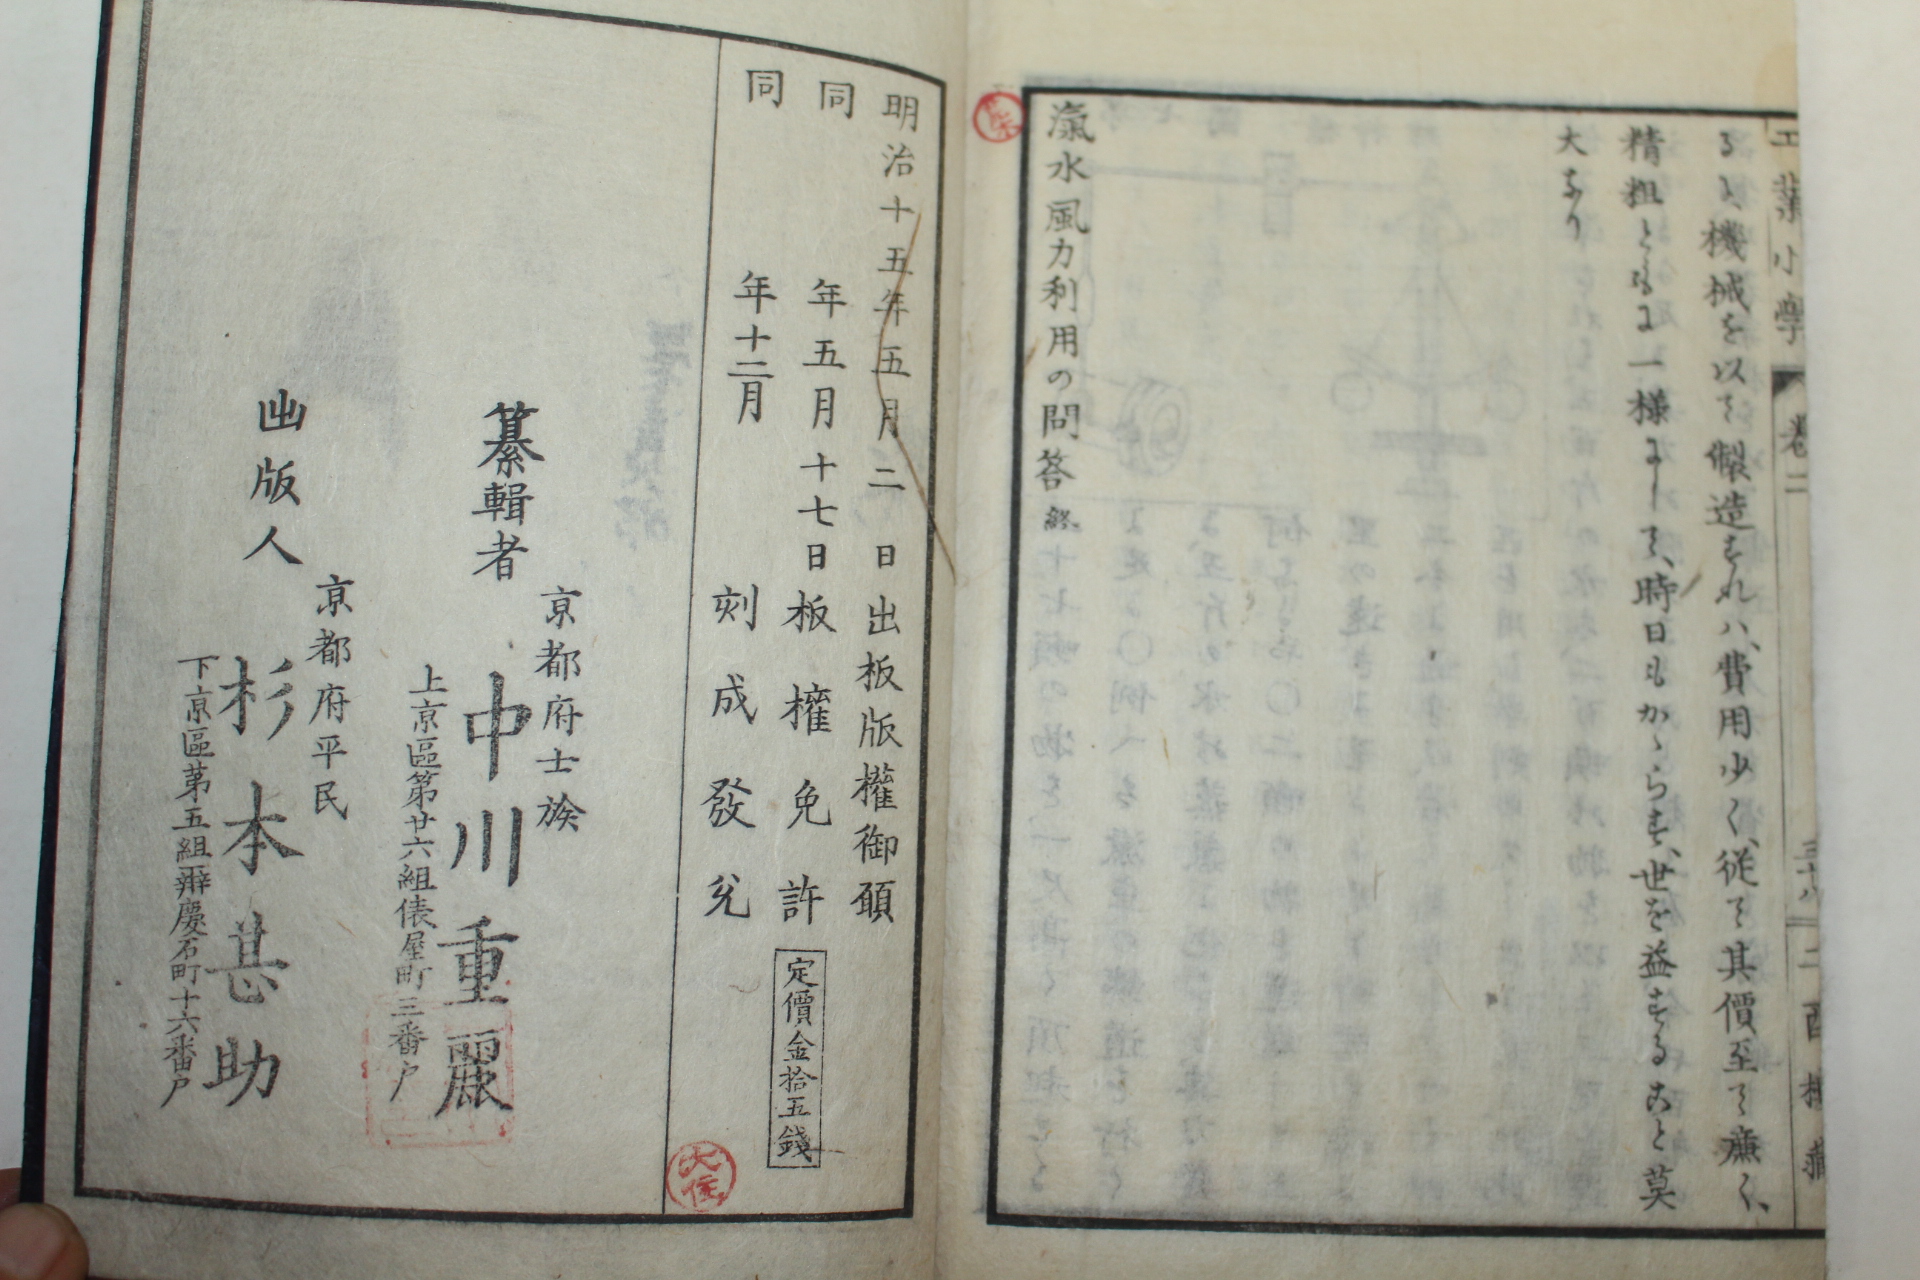 工業小學 卷二 三十八 二酉樓藏
るに機械を以て製造すれハ、費用少く、従て其價至て廉く、
精粗ともに一様にして、時日もかゝらす、世を益すること莫
大なり
滊水風力利用の問答終
明治十五年五月二日出板版權御願
同年五月十七日板權免許
同年十二月刻成發兌
定價金拾五錢
大住
纂輯者
京都府士族
中川重麗
上京區第廿六組俵屋町三番戸
出版人
京都府平民
杉本甚助
下京區第五組辧慶石町十六番戸